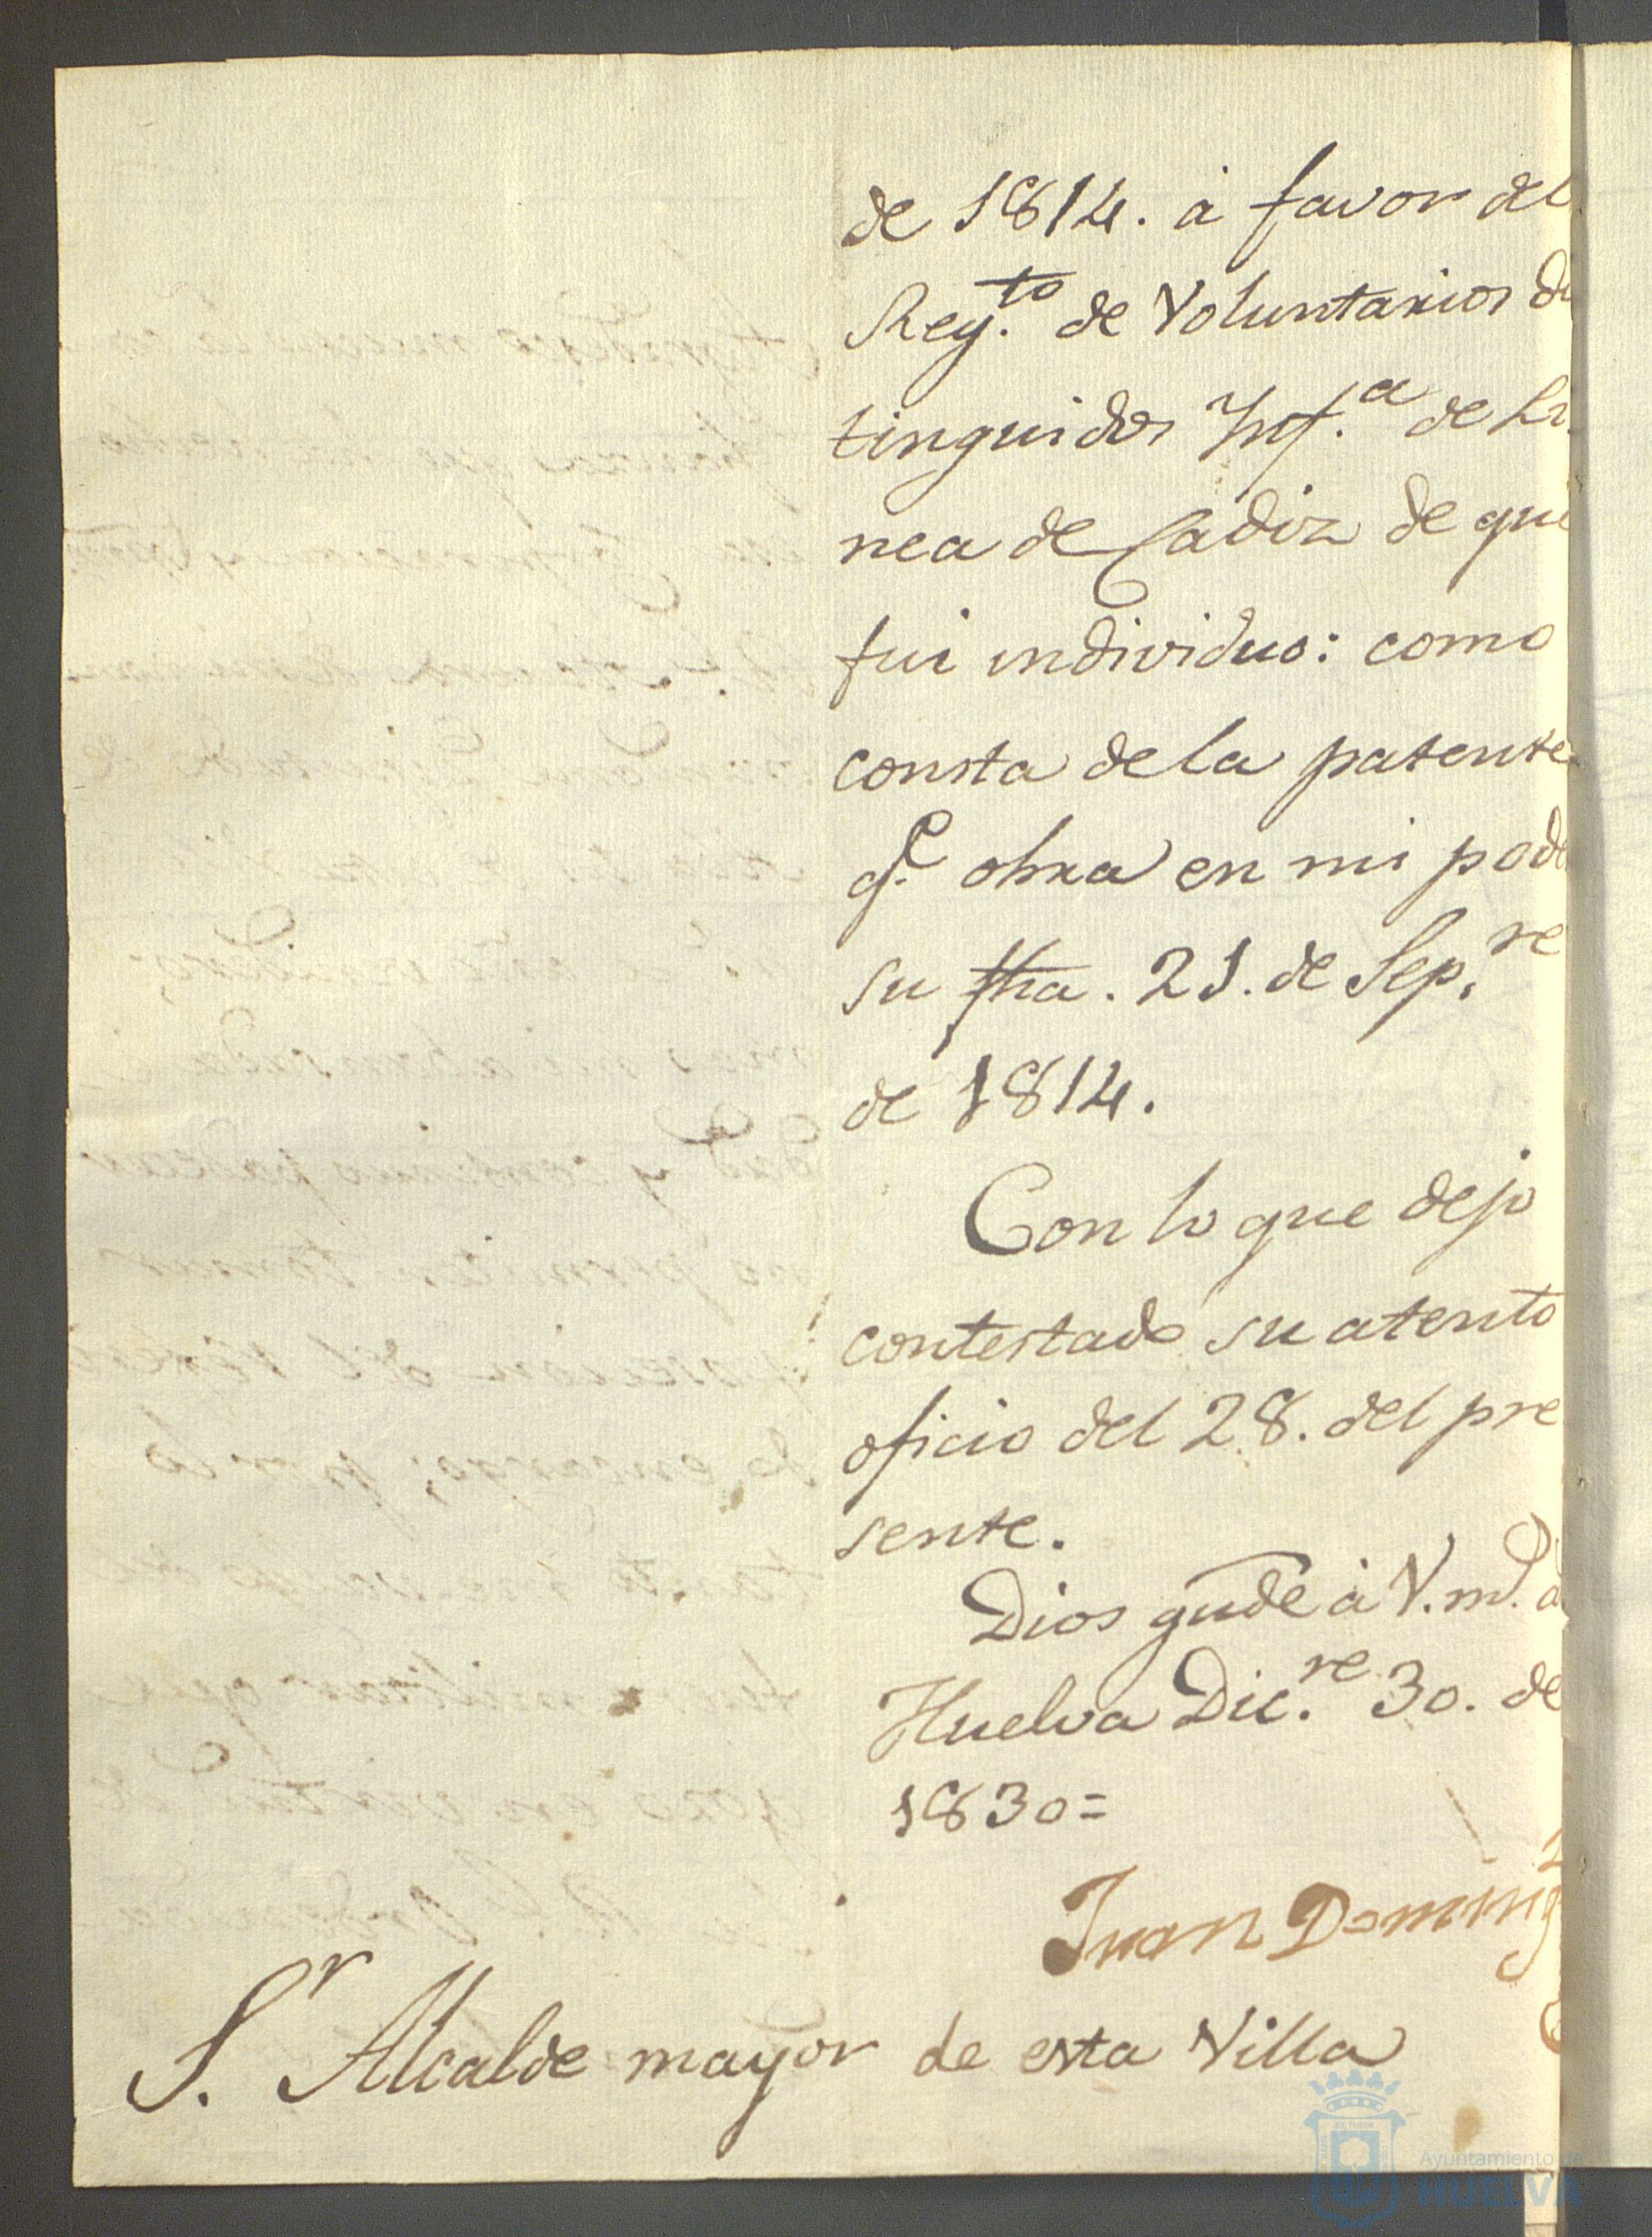 de 1814. à favor del
Reg.to de Voluntarios di
tinguidos Inf.a de Li
nea de Cadiz de que
fui individuo: como
consta de la patente
q.e obra en mi pode
su fha. 21. de Sep.re
de 1814.
Con lo que dejo
contestado su atento
oficio del 28. del pre
sente.
Dios gude à V.md. a
Huelva Dic.re 30. de
1830=
Juan Doming
S.r Alcalde mayor de esta Villa
Ayuntamiento de
HUELVA